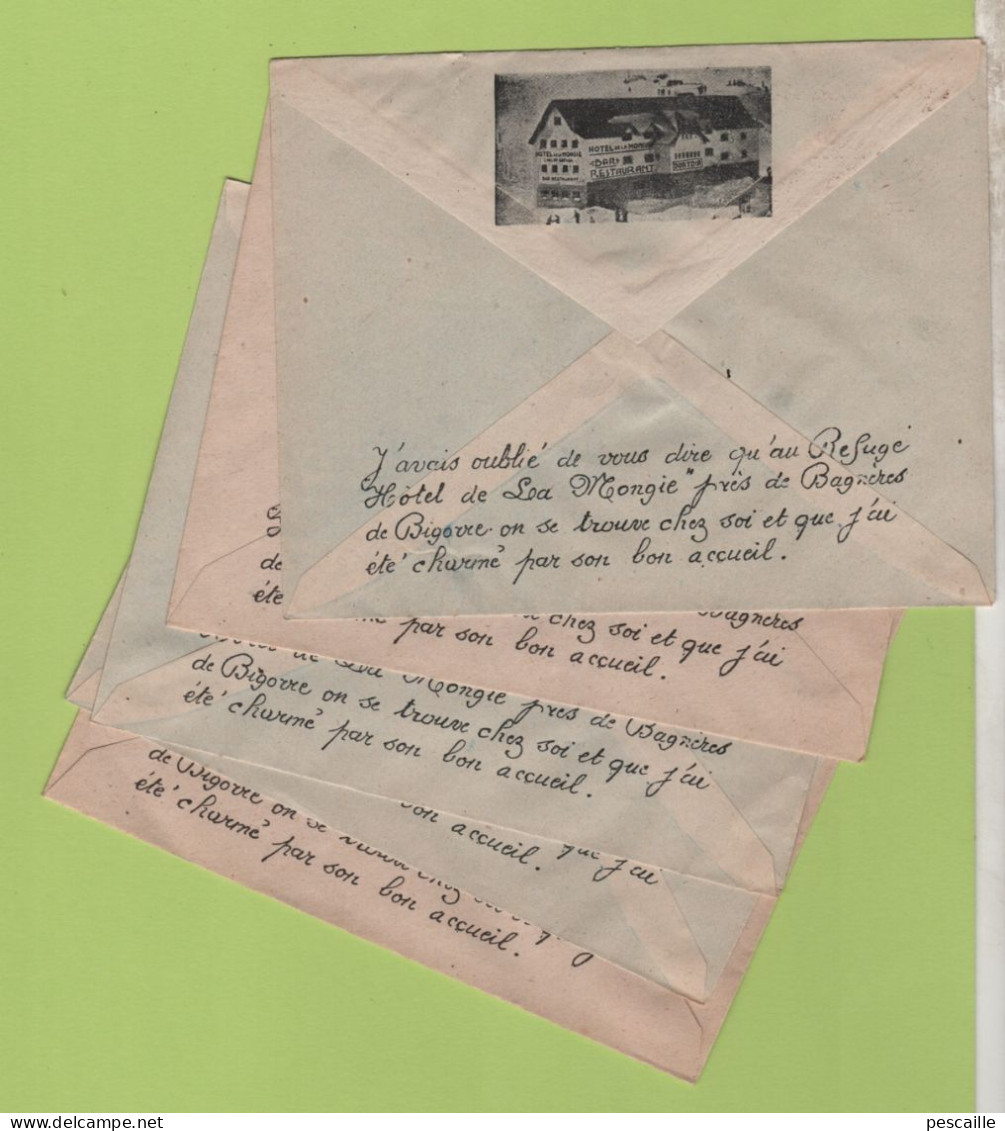 HOTEL DE LA MONGIE
BAR RESTAURANT
HOTEL DE LA MONGIE
BAR
RESTAURANT
J'avais oublié de vous dire qu'au Refuge
Hôtel de La Mongie" près de Bagnères
de Bigorre on se trouve chez soi et que j'ai
été charmé par son bon accueil.
de
été
Bagnères
chez soi et que j'ai
par son bon accueil.
de La Mongie près de Bagnères
de Bigorre on se trouve chez soi et que j'ai
été charmé par son bon accueil.
que j'ai
bon accueil.
de Bigorre on se
été charmé par son bon accueil.
pescaille